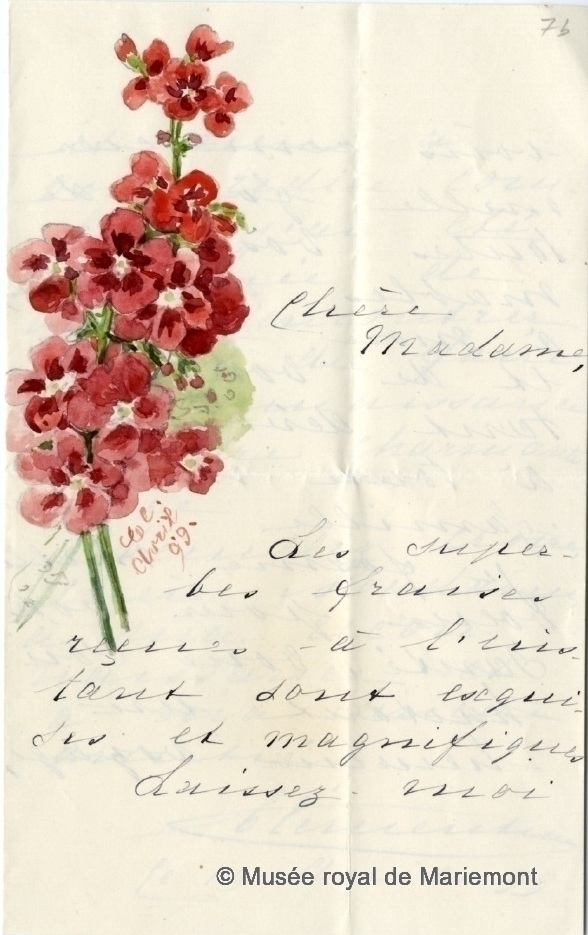 76
Chère
Madame,
Les super-
bes fraises
reçues - à l'ins-
tant sont exqui-
ses et magnifiques
Laissez-moi
99.
© Musée royal de Mariemont